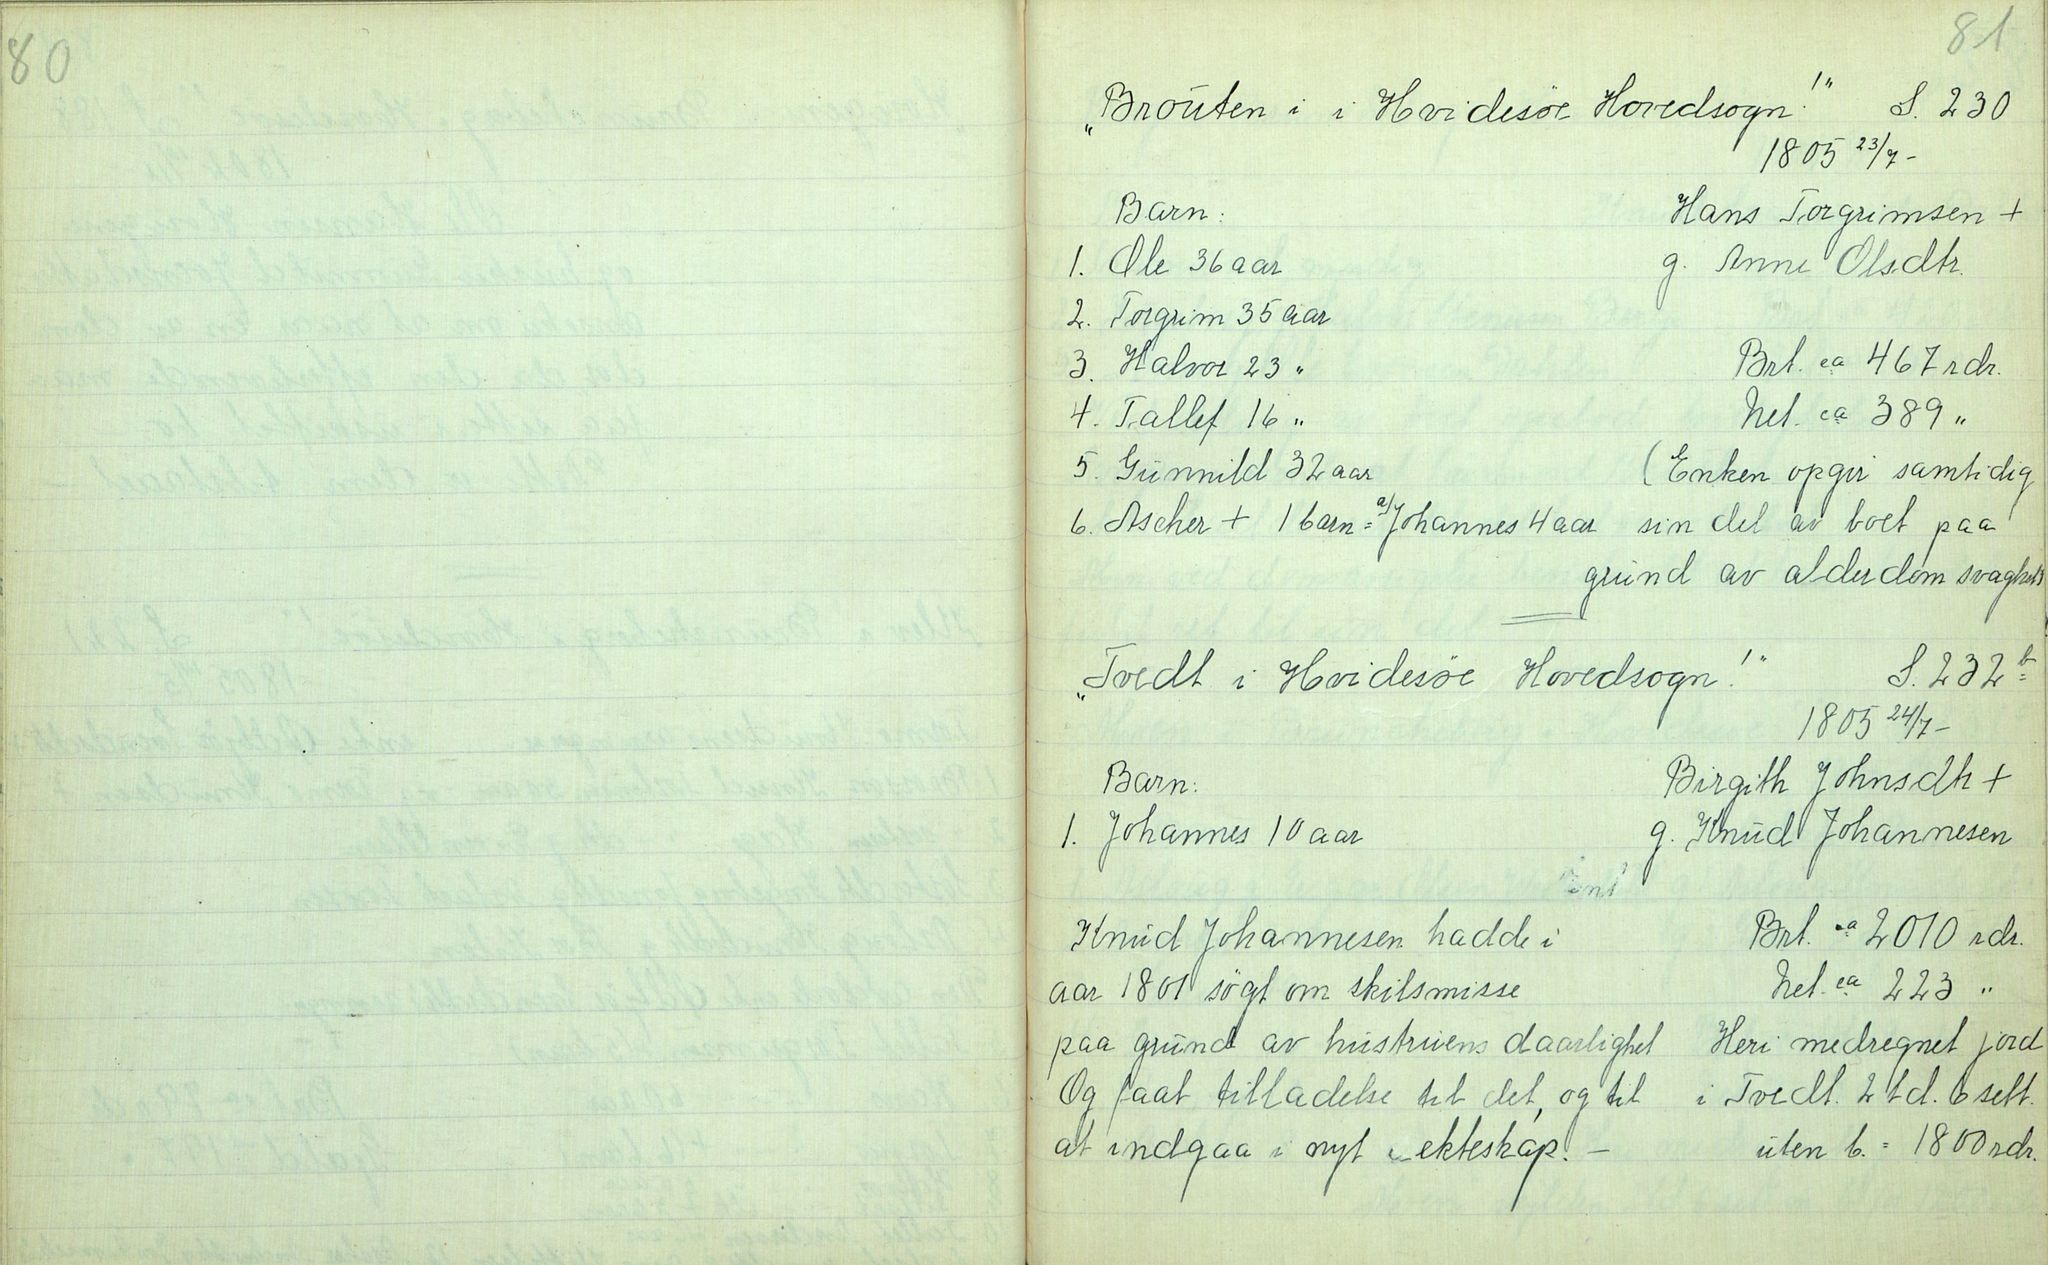 80
81
„Broüten i i Hvidesöe Hovedsogn!“ S. 230
1805 23/7 -
Barn: Hans Torgrimsen +
1. Ole 36 aar g. Anne Olsdtr.
2. Torgrim 35 aar
3. Halvor 23 " Brt. ca 467 rdr.
4. Tallef 16 " Net. ca 389 "
5. Günnild 32 aar (Enken opgir samtidig
6. Ascher + 1 barn = a/ Johannes 4 aar sin del av boet paa
gründ av alderdom svaghet)
„Tvedt i Hvidesöe Hovedsogn!“ S. 232 b
1805 24/7 -
Barn: Birgith Johnsdtr +
1. Johannes 10 aar g. Knüd Johannesen
Knüd Johannesen hadde i Brt. ca 2010 rdr.
aar 1801 søgt om skilsmisse Net. ca 223 "
paa gründ av hüstrüens daarlighet Heri medregnet jord
Og faat tilladelse til det, og til i Tvedt. 2 td. 6 sett.
at indgaa i nyt ekteskap. - üten b. = 1800 rdr.